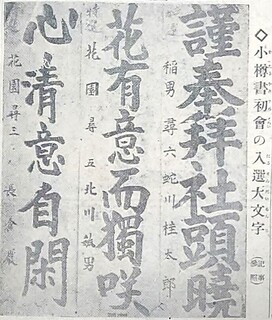 ◇小樽書初會の入選大文字
(記事參照)
謹奉拜社頭曉
稲男 尋六 蛇川桂太郎
花有意而獨咲
特選 花園 尋五 北川敏男
心清意自閑
花園 尋三 長倉